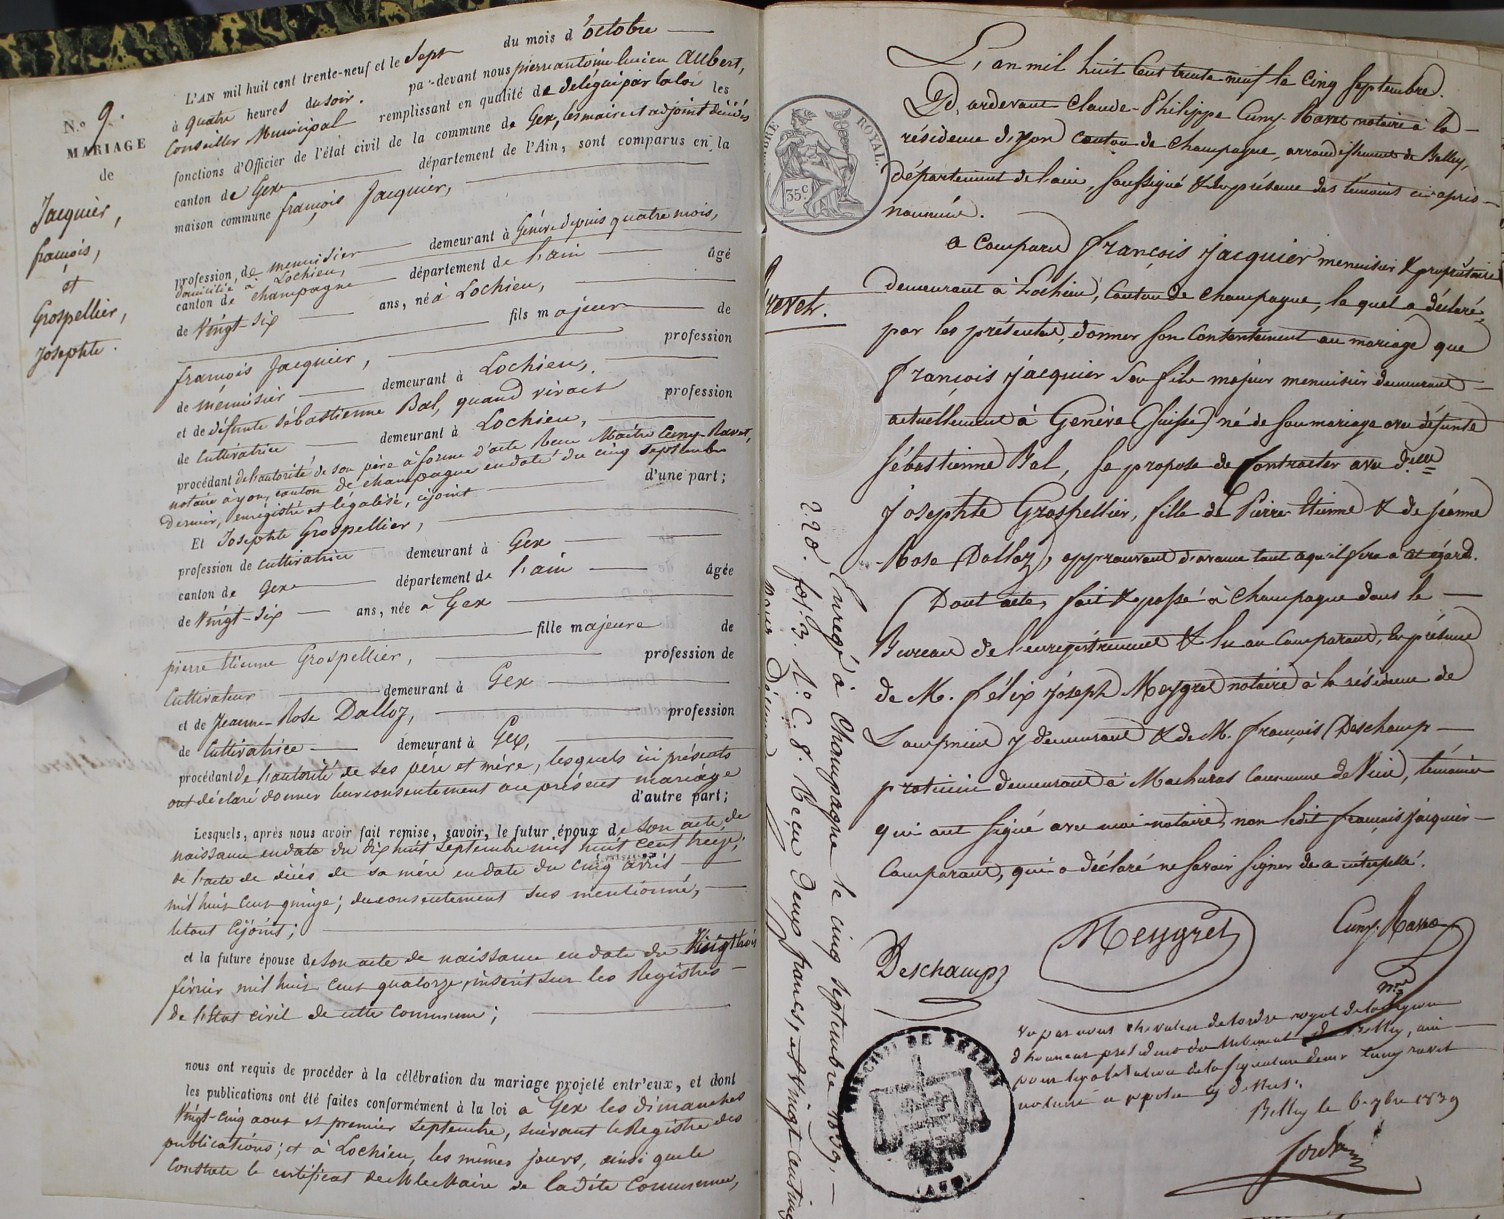 N.º 9.
MARIAGE
de
Jacquier,
françois,
et
Grospellier,
Josephte.
L'AN mil huit cent trente-neuf et le Sept du mois d'octobre
à quatre heures du soir. par-devant nous pierre antoine lucien Aubert,
Conseiller Municipal remplissant en qualité de délégué par la loi les
fonctions d'Officier de l'état civil de la commune de Gex, les maire et adjoint décédés
canton de Gex département de l'Ain, sont comparus en la
maison commune françois Jacquier,
profession de menuisier demeurant à Genève depuis quatre mois,
domicilié à Lochieu,
canton de champagne département de l'ain âgé
de vingt-six ans, né à Lochieu,
fils majeur de
françois Jacquier, profession
de menuisier demeurant à Lochieu,
et de défunte Sébastienne Bal, quand vivait profession
de Cultivatrice demeurant à Lochieu,
procédant de l'autorité de son père à forme d'acte reçu Maître Cuny-Ravet,
notaire à yon, canton de champagne en date du cinq septembre
dernier, enregistré et légalisé, cijoint d'une part;
Et Josephte Grospellier,
profession de cultivatrice demeurant à Gex
canton de Gex département de l'ain âgée
de vingt-six ans, née à Gex
fille majeure de
pierre Etienne Grospellier, profession de
Cultivateur demeurant à Gex
et de Jeanne-Rose Dalloz, profession
de Cultivatrice demeurant à Gex,
procédant de l'autorité de ses père et mère, lesquels ici présents
ont déclaré donner leur consentement au présent mariage
d'autre part;
Lesquels, après nous avoir fait remise, savoir, le futur époux de son acte de
naissance en date du dix huit septembre mil huit cent treize;
de l'acte de décès de sa mère en date du cinq avril
mil huit cent quinze; du consentement sus mentionné,
le tout cijoint;
et la future épouse de son acte de naissance en date du Vingt trois
février mil huit cent quatorze, inscrit sur les Registres
de l'Etat civil de cette commune;
nous ont requis de procéder à la célébration du mariage projeté entr'eux, et dont
les publications ont été faites conformément à la loi à Gex les dimanches
Vingt-cinq aout et premier septembre, suivant le Registre des
publications; et à Lochieu, les mêmes jours, ainsi que le
Constate le certificat de M. le Maire de ladite Commune,
ROYAL.
35 c
L'an mil huit cent trente neuf le cinq septembre.
Pardevant Claude-Philippe Cuny-Ravet notaire à la
residence d'yon canton de Champagne, arrondissement de Belley,
département de l'ain, soussigné & en présence des témoins ci après
nommés.
a comparu françois jacquier menuisier & proprietaire
demeurant à Lochieu, Canton de Champagne, lequel a déclaré,
par les présentes, donner son Consentement au mariage que
françois jacquier son fils majeur menuisier demeurant
actuellement à Genève (suisse) né de son mariage avec défunte
Sébastienne Bal, se propose de Contracter avec d.elle
josephte Grospellier, fille de Pierre Etienne & de jeanne
Rose Dalloz, approuvant d'avance tout ce qu'il fera à cet égard.
Dont acte, fait & passé à Champagne dans le
Bureau de l'enregistrement & lu au Comparant, En présence
de M. félix joseph Meygret notaire à la résidence de
Lompnieu y demeurant & de M. françois Deschamp
praticien demeurant à Machuraz Commune de Vieu, témoins
qui ont signé avec moi notaire, non ledit françois jacquier
Comparant, qui a déclaré ne savoir signer de ce interpellé.
Deschamps
Meygret
Cuny-Ravet
Ravet.
Enregé à Champagne le cinq septembre 1839.
220. fol. 3. R.º C. 8. Reçu deux francs, et vingt centimes
pour décime.
Vu par nous chevalier de l'ordre royal de la légion
d'honneur president du tribunal de Belley, ain
pour légalisation de la signature de me Cuny ravet
notaire apposée ci dessus.
Belley le 6 7bre 1839
CIVIL DE BELLEY
(AIN)